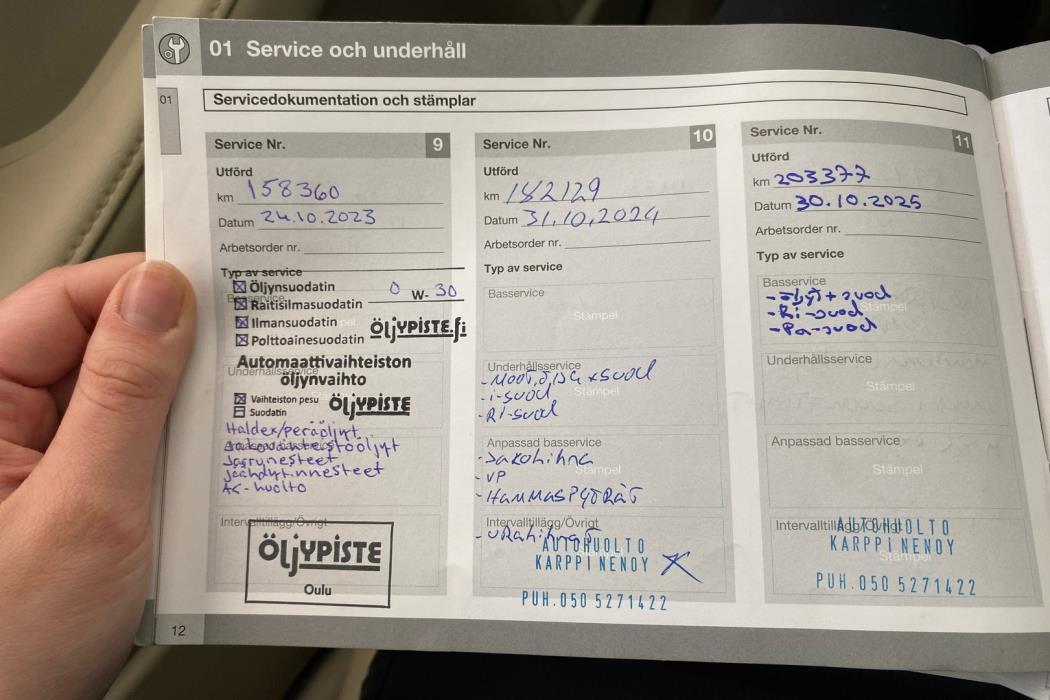 01 Service och underhåll
01
Servicedokumentation och stämplar
Service Nr. 9
Utförd
km 158360
Datum 24.10.2023
Arbetsorder nr.
Typ av service
Öljynsuodatin 0 W- 30
Raitisilmasuodatin
Ilmansuodatin
Polttoainesuodatin ÖljYPISTE.fi
Automaattivaihteiston
öljynvaihto
Underhållsservice
Vaihteiston pesu
Suodatin ÖljYPISTE
Haldex/peräöljyt
Jakovaihteistoöljyt
Jarrunesteet
Jäähdytinnesteet
AC-huolto
Intervalltillägg/Övrigt
ÖljYPISTE
Oulu
12
Service Nr. 10
Utförd
km 182129
Datum 31.10.2024
Arbetsorder nr.
Typ av service
Basservice
Stämpel
Underhållsservice
-i-suod Stämpel
-Ri-suod
Anpassad basservice
-Jakohihna
Stämpel
-VP
-HAMMASPYÖRÄT
Intervalltillägg/Övrigt
-URahihnat
AUTOHUOLTO
KARPPINEN OY
PUH.050 5271422
Service Nr. 11
Utförd
km 203377
Datum 30.10.2025
Arbetsorder nr.
Typ av service
Basservice
-öljyt+suod
Stämpel
-Ri-suod
-Pa-suod
Underhållsservice
Stämpel
Anpassad basservice
Stämpel
Intervalltillägg/Övrigt
AUTOHUOLTO
KARPPINEN OY
Stämpel
PUH.050 5271422